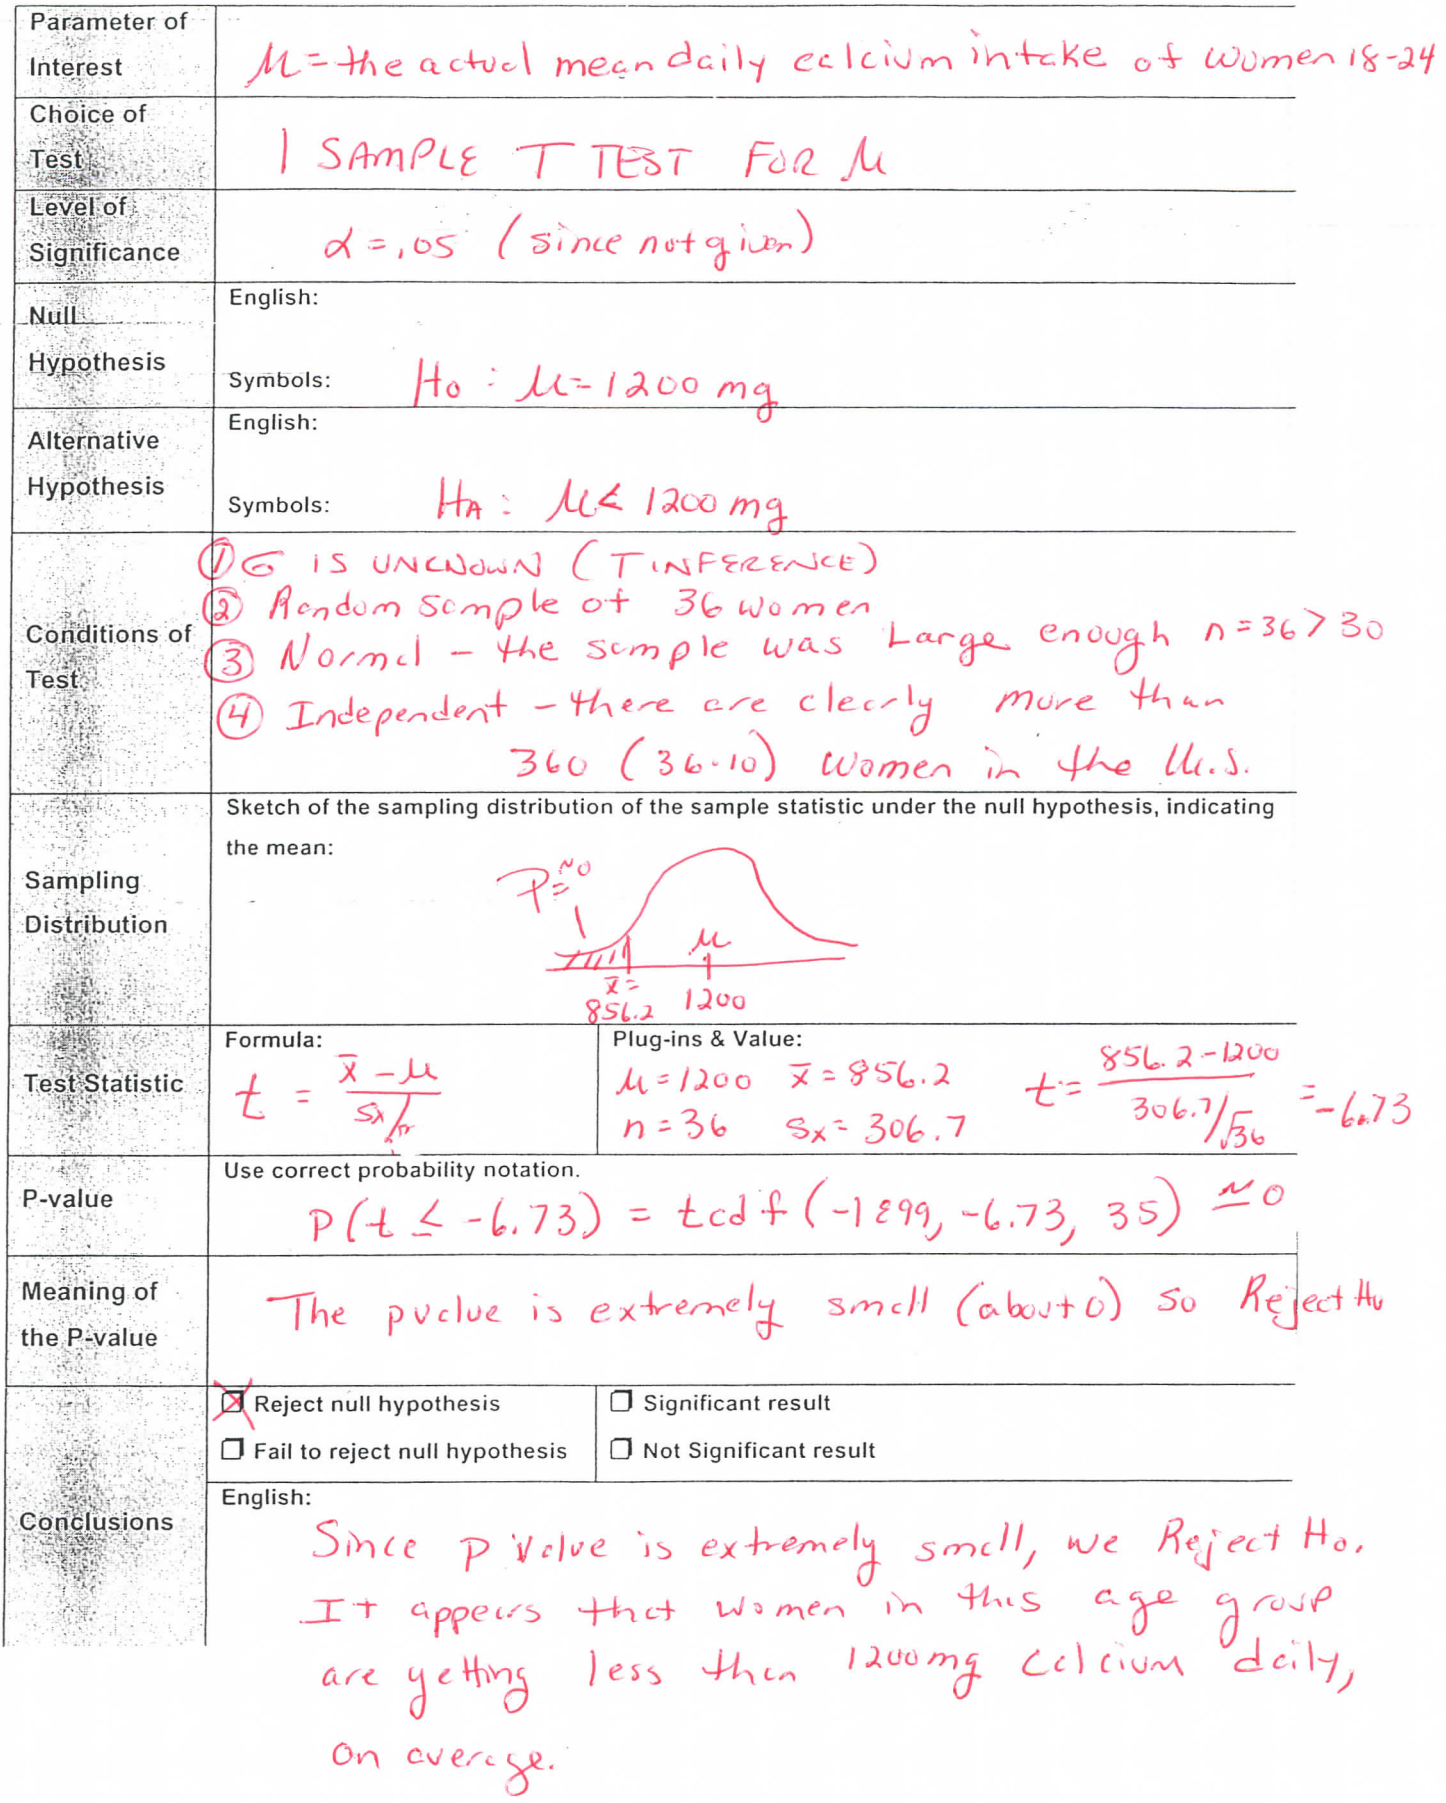 Parameter of
Interest
μ = the actual mean daily calcium intake of women 18-24
Choice of
Test
1 SAMPLE T TEST FOR μ
Level of
Significance
α = .05 (since not given)
Null
Hypothesis
English:
Symbols: H₀ : μ = 1200 mg
Alternative
Hypothesis
English:
Symbols: Hₐ : μ < 1200 mg
Conditions of
Test
① σ IS UNKNOWN (T INFERENCE)
② Random sample of 36 women
③ Normal - the sample was Large enough n = 36 > 30
④ Independent - there are clearly more than
360 (36·10) women in the U.S.
Sampling
Distribution
Sketch of the sampling distribution of the sample statistic under the null hypothesis, indicating
the mean:
P = ~0
μ
x̄ =
856.2 1200
Test Statistic
Formula:
t = (x̄ - μ) / (sx/√n)
Plug-ins & Value:
μ = 1200 x̄ = 856.2
n = 36 sx = 306.7
t = (856.2 - 1200) / (306.7/√36) = -6.73
P-value
Use correct probability notation.
P(t ≤ -6.73) = tcdf(-1E99, -6.73, 35) ≃ 0
Meaning of
the P-value
The pvalue is extremely small (about 0) so Reject H₀
Conclusions
☒ Reject null hypothesis
☐ Fail to reject null hypothesis
☐ Significant result
☐ Not Significant result
English:
Since P Value is extremely small, we Reject H₀.
It appears that women in this age group
are getting less than 1200mg Calcium daily,
on average.